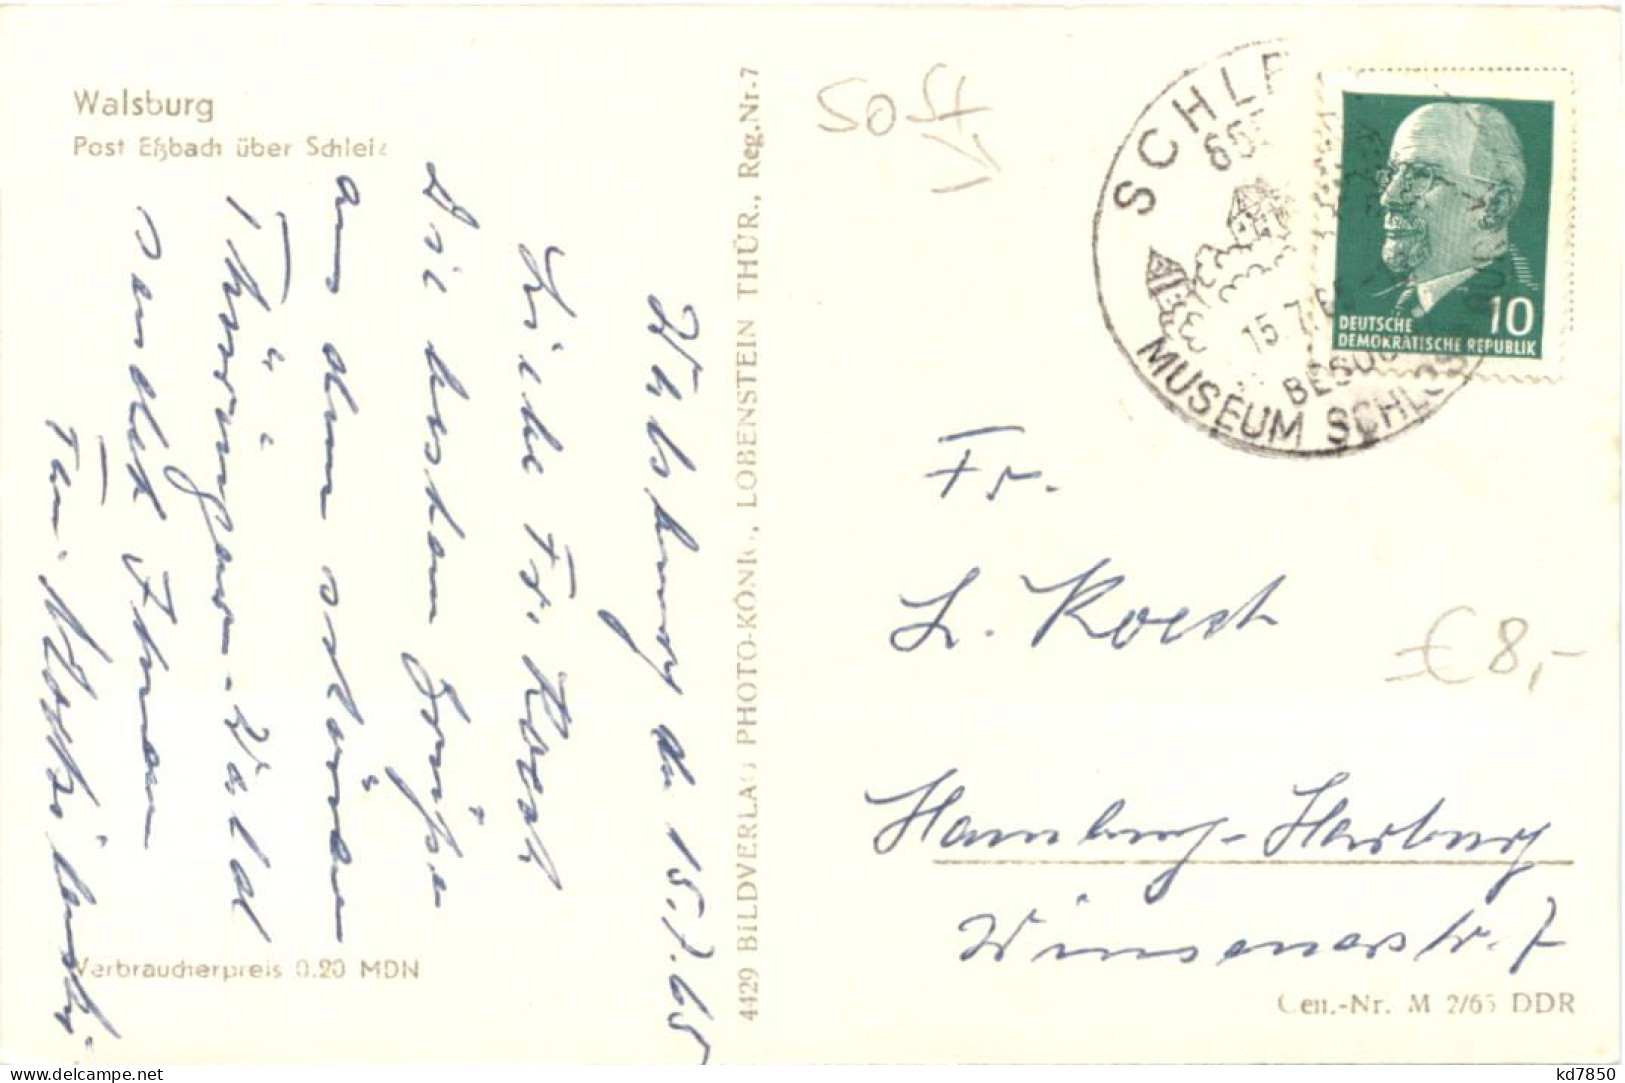 Walsburg
Post Eßbach über Schleiz
Walsburg d. 15.7.65
Liebe Fr. Koch
Die besten Grüße
aus dem schönen
Thüringer-Wald
sendet Ihnen
Fam.
Verbraucherpreis 0.20 MDN
4429 BILDVERLAG PHOTO-KÖNIG, LOBENSTEIN THÜR., Reg.Nr.7
SCHLE
655
15.7.6
BESUC
MUSEUM SCHLOSS
10
DEUTSCHE
DEMOKRATISCHE REPUBLIK
Fr.
L. Koch
€ 8,-
Hamburg-Harburg
Winsenerstr. 7
Gen.-Nr. M 2/65 DDR
kd7850